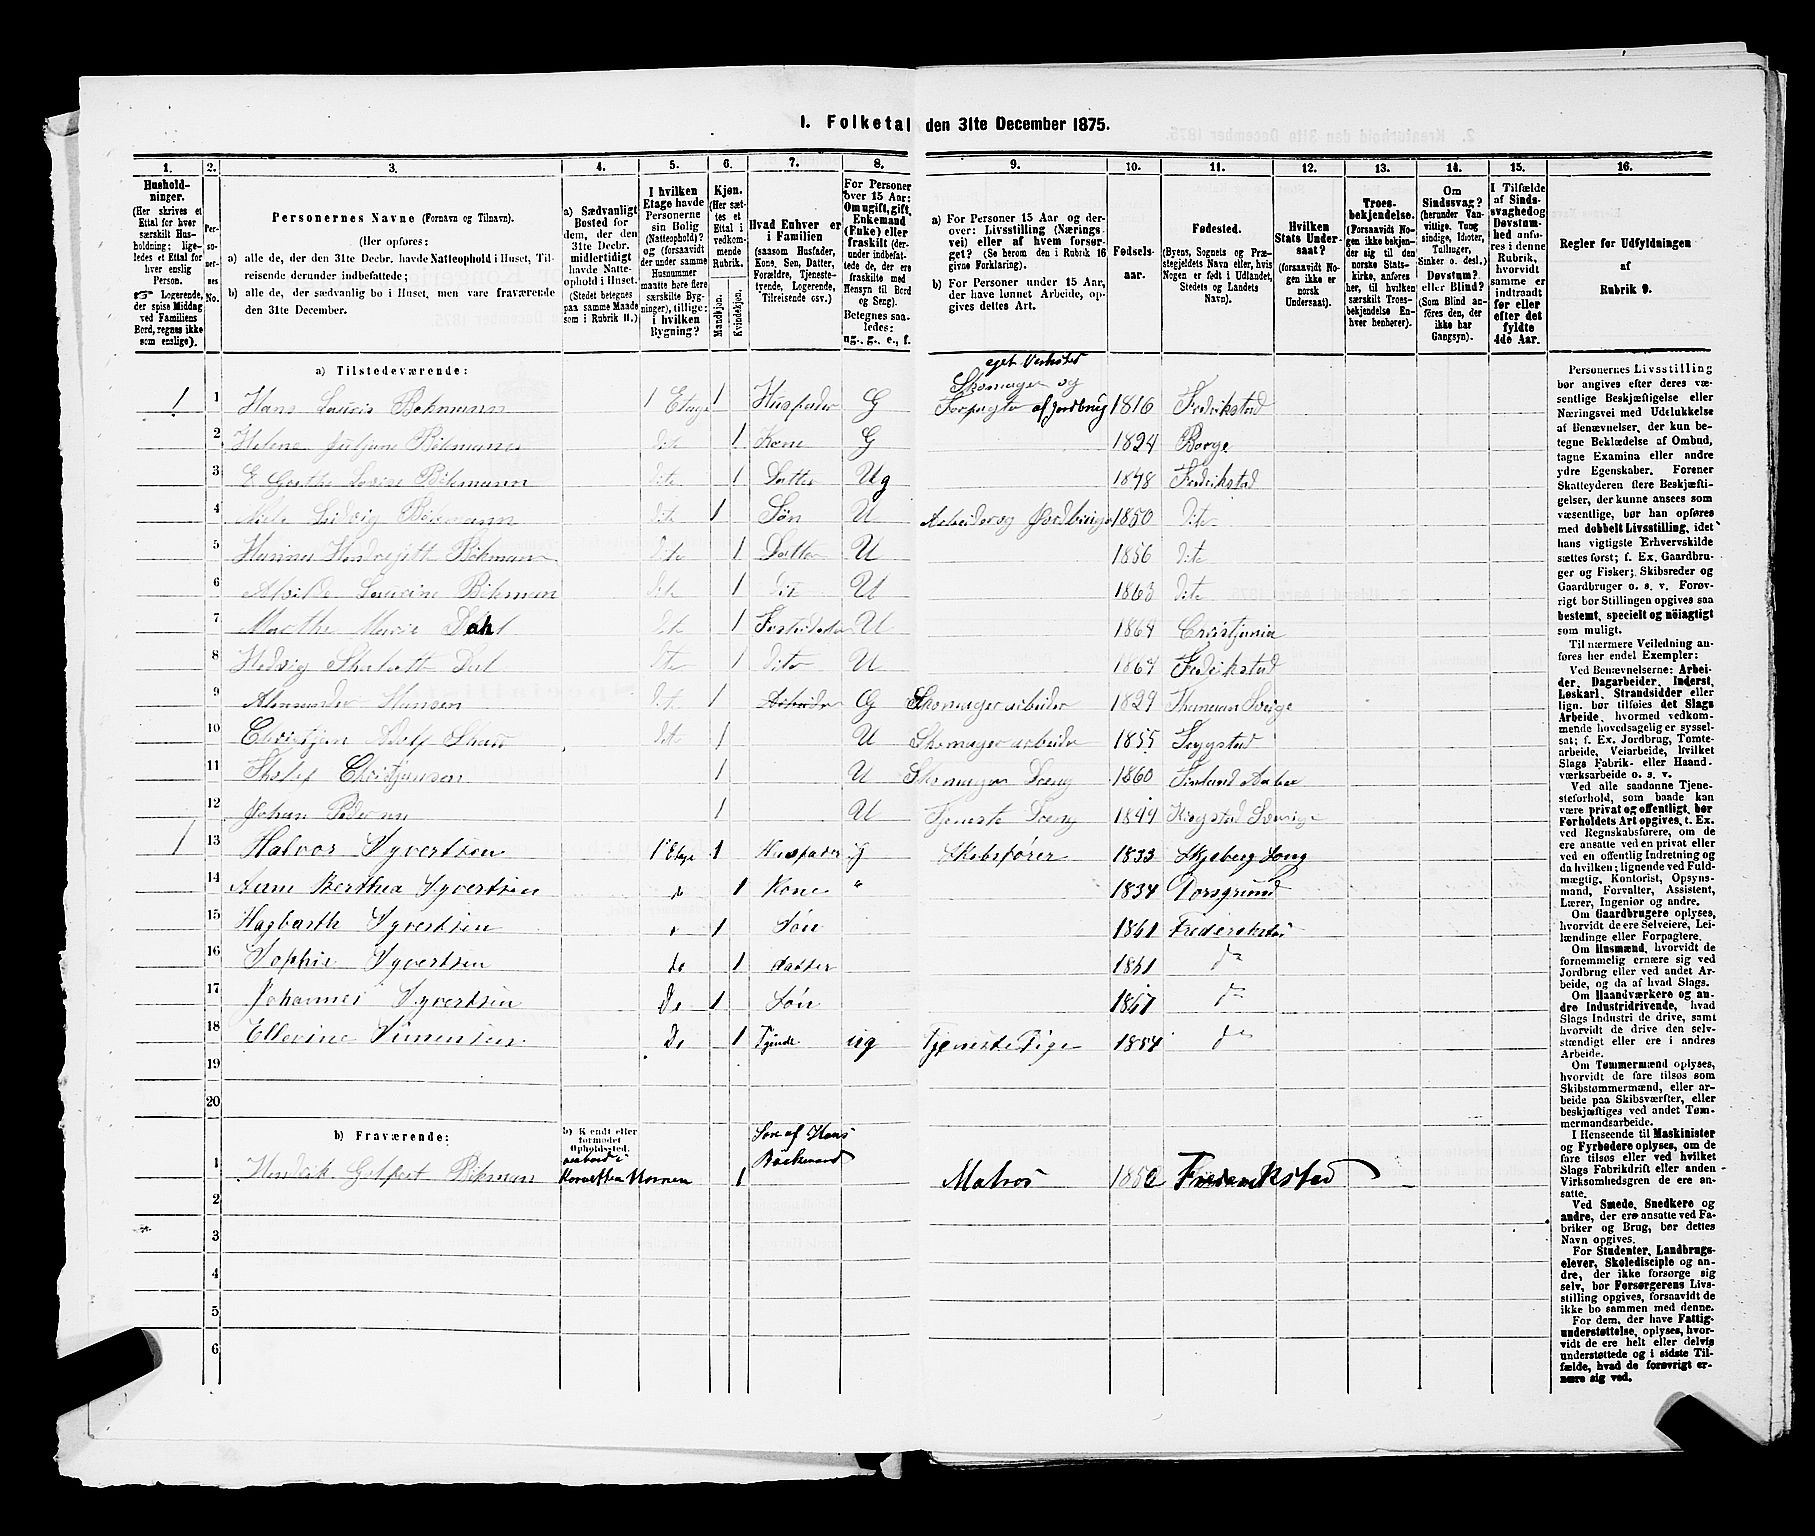 I. Folketal den 31te December 1875.
1. 2. 3. 4. 5. 6. 7. 8. 9. 10. 11. 12. 13. 14. 15. 16.
Husholdninger.
(Her skrives et
Ettal for hver
særskilt Husholdning;
ligeledes et Ettal for
hver enslig
Person.
☞ Logerende,
der spise Middag
ved Familiens
Bord, regnes ikke
som enslige).
Personernes No.
Personernes Navne (Fornavn og Tilnavn).
(Her opføres:
a) alle de, der den 31te Decbr. havde Natteophold i Huset, Tilreisende derunder indbefattede;
b) alle de, der sædvanlig bo i Huset, men vare fraværende
den 31te December.
a) Sædvanligt
Bosted for
dem, der den
31te Decbr.
midlertidigt
havde Natteophold i Huset.
(Stedet betegnes
paa samme Maade
som i Rubrik 11.)
I hvilken
Etage havde
Personerne
sin Bolig
(Natteophold)?
og (forsaavidt
der under samme
Husnummer
maatte høre flere
særskilte Bygninger), tillige:
i hvilken
Bygning?
Kjøn.
(Her sættes et
Ettal i
vedkommende
Rubrik.
Mandkjøn.
Kvindekjøn.
Hvad Enhver er
i Familien
(saasom Husfader,
Kone, Søn, Datter,
Forældre, Tjenestetyende, Logerende,
Tilreisende osv.)
For Personer
over 15 Aar:
Om ugift, gift,
Enkemand
(Enke) eller
fraskilt (derunder indbefattede de, der ere
fraskilte med
Hensyn til Bord
og Seng).
Betegnes saaledes:
ug., g., e., f.
a) For Personer 15 Aar og derover: Livsstilling (Næringsvei) eller af hvem forsørget? (Se herom den i Rubrik 16
givne Forklaring).
b) For Personer under 15 Aar,
der have lønnet Arbeide, opgives dettes Art.
Fødselsaar.
Fødested.
(Byens, Sognets og Præstegjeldets Navn eller, hvis
Nogen er født i Udlandet,
Stedets og Landets
Navn).
Hvilken
Stats Undersaat?
(forsaavidt Nogen ikke er
norsk
Undersaat).
Troesbekjendelse.
(Forsaavidt Nogen ikke bekjender sig til den
norske Statskirke, anføres
her, til hvilken
særskilt Troesbekjendelse Enhver henhører).
Om
Sindssvag?
(herunder Vanvittige, Tungsindige, Idioter,
Tullinger,
Sinker o. desl.)
Døvstum?
eller Blind?
(Som Blind anføres den, der
ikke har
Gangsyn).
I Tilfælde
af Sindssvaghed og
Døvstumhed anføres i denne
Rubrik,
hvorvidt
samme er
indtraadt
før eller
efter det
fyldte
4de Aar.
Regler for Udfyldningen
af
Rubrik 9.
a) Tilstedeværende:
eget Verksted
Skomager og
1 1 Hans Lauris Bøhmann 1 Etage 1 Husfader G Forpagter af Jordbrug 1816 Fredrikstad
2 Helene Juljane Bøhmann dito 1 Kone G 1824 Borge
3 E Grethe Lovise Bøhmann dito 1 Datter Ug 1848 Fredrikstad
4 Niels Ludvig Bøhmann dito 1 Søn U 1850 dito
5 Bøhmann dito 1 Datter U 1856 dito
6 Alvilde Laurine Bøhman dito 1 dito U 1863 dito
7 Marthe Marie Dahl dito 1 U 1864 Cristjania
8 Hedvig Dal dito 1 dito U 1867 Fredrikstad
9 Hansen dito 1 Arbeider G Skomager arbeider 1829
10 Christjan Adolf dito 1 U Skomager arbeider 1855
11 Christjansen 1 U Skomager Dreng 1860
12 Johan Pedersen 1 U Tjeneste Dreng 1849
1 13 Halvor Syvertsen 1 Etage 1 Husfader g Skibsfører 1833 Skjeberg Sogn
14 Anne Berthea Syvertsen do 1 Kone " 1834 Porsgrund
15 Hagbarth Syvertsen 1 Søn 1861
16 Sophie Syvertsen do 1 Datter 1861 do
17 Johannes Syvertsen Do 1 Søn 1867 do
18 Ellevine Simensen Do 1 Tyende ug Tjeneste Pige 1854 do
19
20
b) Fraværende:
b) Kjendt eller
formodet
Opholdssted.
ombord i
Korvetten Nornen
Søn af Hans
Bøckmand
1 Hendrik Bøhman 1 Matros Frederikstad
2
3
4
5
6
Personernes Livsstilling
bør angives efter deres væsentlige Beskjæftigelse eller
Næringsvei med Udelukkelse
af Benævnelser, der kun betegne Beklædelse af Ombud,
tagne Examina eller andre
ydre Egenskaber. Forener
Skatteyderen flere Beskjæftigelser, der kunne ansees som
væsentlige, bør han opføres
med dobbelt Livsstilling, idet
hans vigtigste Erhvervskilde
sættes først; f. Ex. Gaardbruger og Fisker; Skibsreder og
Gaardbruger o. s. v. Forøvrigt bør Stillingen opgives saa
bestemt, specielt og nöiagtigt
som muligt.
Til nærmere Veiledning anføres her endel Exempler:
Ved Benævnelserne: Arbeider, Dagarbeider, Inderst,
Løskarl, Strandsidder eller
lign. bør tilføies det Slags
Arbeide, hvormed vedkommende hovedsagelig er sysselsat; f. Ex. Jordbrug, Tomtearbeide, Veiarbeide, hvilket
Slags Fabrik- eller Haandværksarbeide o. s. v.
Ved alle saadanne Tjenesteforhold, som baade kan
være privat og offentligt, bør
Forholdets Art opgives, f. Ex.
ved Regnskabsførere, om de
ere ansatte ved en privat eller
ved en offentlig Indretning og
da hvilken; lignende ved Fuldmægtig, Kontorist, Opsynsmand, Forvalter, Assistent,
Lærer, Ingeniør og andre.
Om Gaardbrugere oplyses,
hvorvidt de ere Selveiere, Leilændinge eller Forpagtere.
Om Husmænd, hvorvidt de
fornemmelig ernære sig ved
Jordbrug eller ved andet Arbeide, og da af hvad Slags.
Om Haandværkere og andre Industridrivende, hvad
Slags Industri de drive, samt
hvorvidt de drive den selvstændigt eller ere i andres
Arbeide.
Om Tømmermænd oplyses,
hvorvidt de fare tilsøs som
Skibstømmermænd, eller arbeide paa Skibsværfter, eller
beskjæftiges ved andet Tømmermandsarbeide.
I Henseende til Maskinister
og Fyrbødere oplyses, om de
fare tilsøs eller ved hvilket
Slags Fabrikdrift eller anden
Virksomhedsgren de ere ansatte.
Ved Smede, Snedkere og
andre, der ere ansatte ved Fabriker og Brug, bør dettes
Navn opgives.
For Studenter, Landbrugselever, Skoledisciple og andre, der ikke forsørge sig
selv, bør Forsørgerens Livsstilling opgives, forsaavidt de
ikke bo sammen med denne.
For dem, der have Fattigunderstøttelse, oplyses, hvorvidt de ere helt eller delvis
understøttede og i sidste Tilfælde, hvad de forøvrigt ernære sig ved.